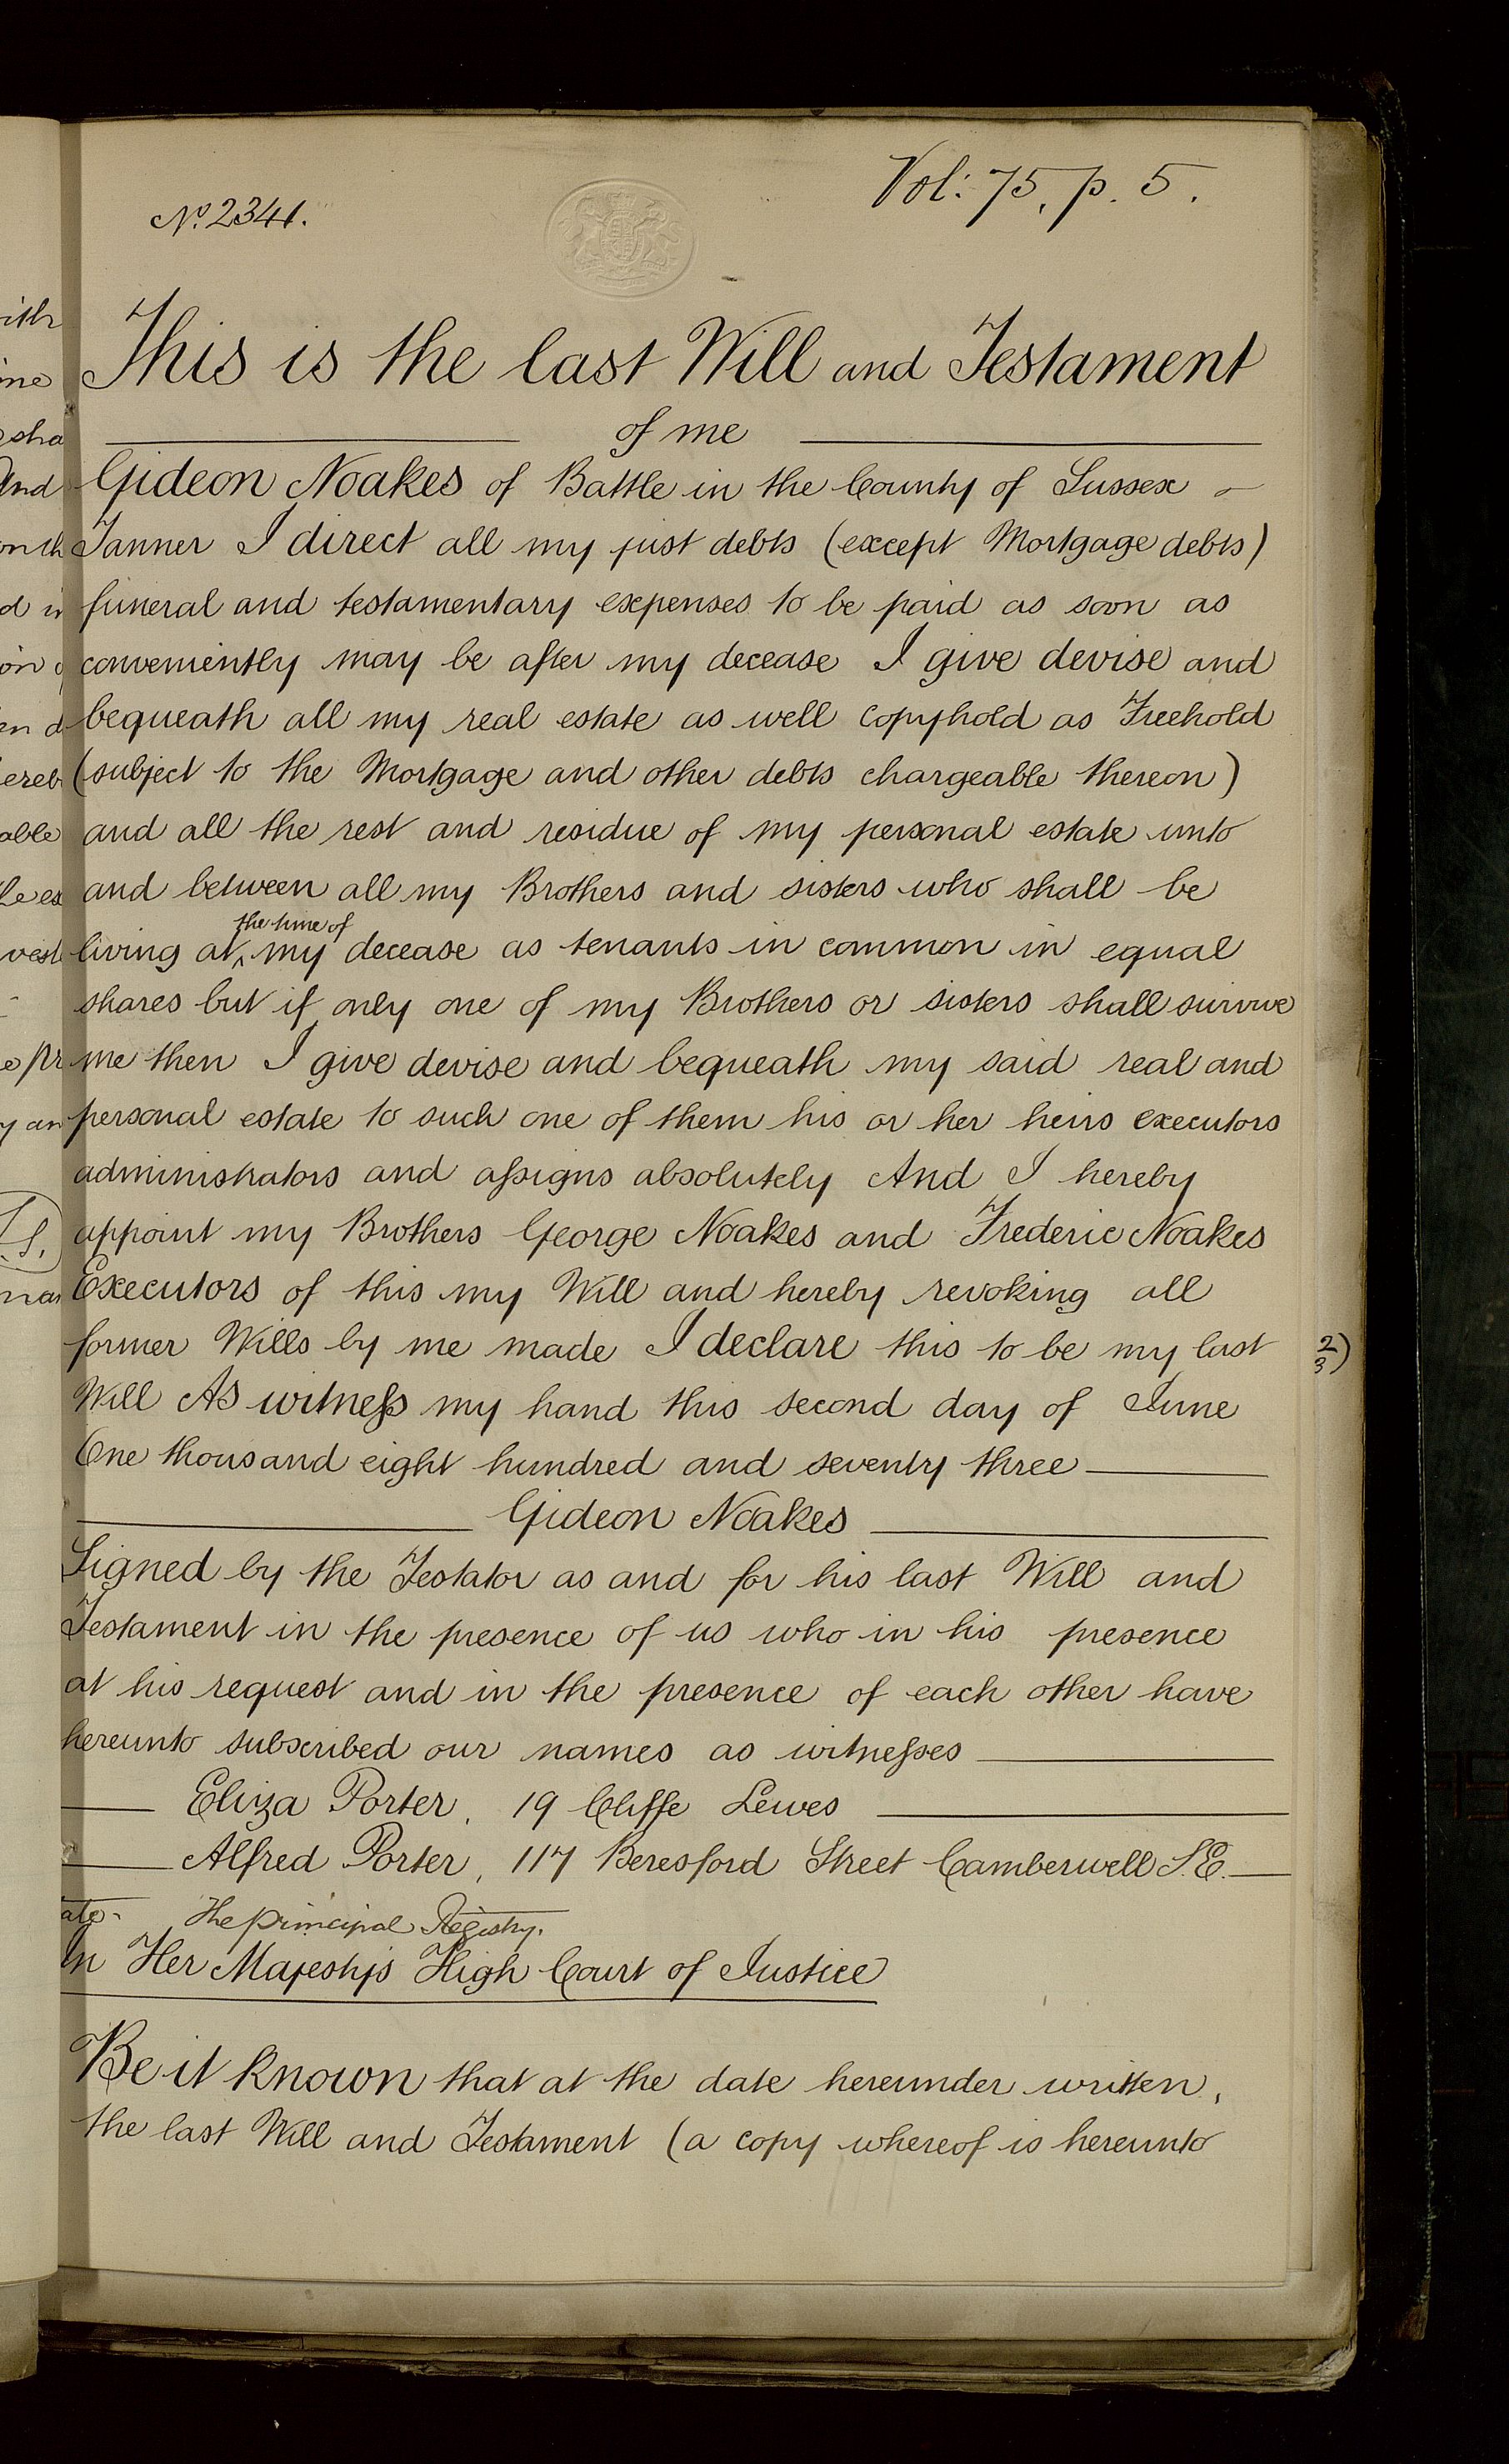 Vol: 75, p. 5.
No. 2341.
This is the last Will and Testament
of me
Gideon Noakes of Battle in the County of Sussex
Tanner I direct all my just debts (except Mortgage debts)
funeral and testamentary expenses to be paid as soon as
conveniently may be after my decease I give devise and
bequeath all my real estate as well copyhold as Freehold
(subject to the Mortgage and other debts chargeable thereon)
and all the rest and residue of my personal estate unto
and between all my Brothers and sisters who shall be
living at ^the time of my decease as tenants in common in equal
shares but if only one of my Brothers or sisters shall survive
me then I give devise and bequeath my said real and
personal estate to such one of them his or her heirs executors
administrators and assigns absolutely And I hereby
appoint my Brothers George Noakes and Frederic Noakes
Executors of this my Will and hereby revoking all
former Wills by me made I declare this to be my last
2/3)
Will As witness my hand this second day of June
One thousand eight hundred and seventy three
Gideon Noakes
Signed by the Testator as and for his last Will and
Testament in the presence of us who in his presence
at his request and in the presence of each other have
hereunto subscribed our names as witnesses
Eliza Porter, 19 Cliffe Lewes
Alfred Porter, 117 Beresford Street Camberwell S.E.
The principal Registry.
In Her Majesty's High Court of Justice
Be it known that at the date hereunder written,
the last Will and Testament (a copy whereof is hereunto